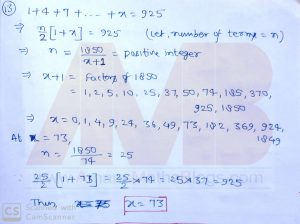 (13) 1+4+7+......+x = 925
⇒ n/2 [1+x] = 925 (Let, number of terms = n)
⇒ n = 1850/x+1 = positive integer
⇒ x+1 = factors of 1850
= 1, 2, 5, 10, 25, 37, 50, 74, 185, 370,
925, 1850
⇒ x = 0, 1, 4, 9, 24, 36, 49, 73, 184, 369, 924,
1849
At x = 73,
n = 1850/74 = 25
25/2 [1+73] = 25/2 × 74 = 25×37 = 925
Thus, x = 73
CS Scanned with
CamScanner